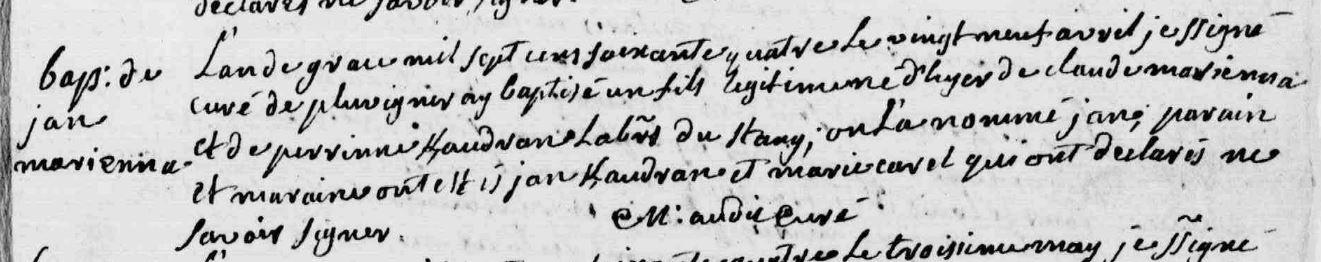 declarés ne savoir signer.
bap: de
jan
marienna
L'an de grace mil sept cens soixante quatre le vingt neuf avril je ssigné
curé de pluvigner ay baptisé un fils legitime né d'hyer de claude marienna
et de perrinne Kaudran Labrs du stang; on l'a nommé jan; parain
et maraine ont estés jan Kaudran et marie carel qui ont declarés ne
savoir signer.
M: audic curé
quatre le troisieme may je ssigné